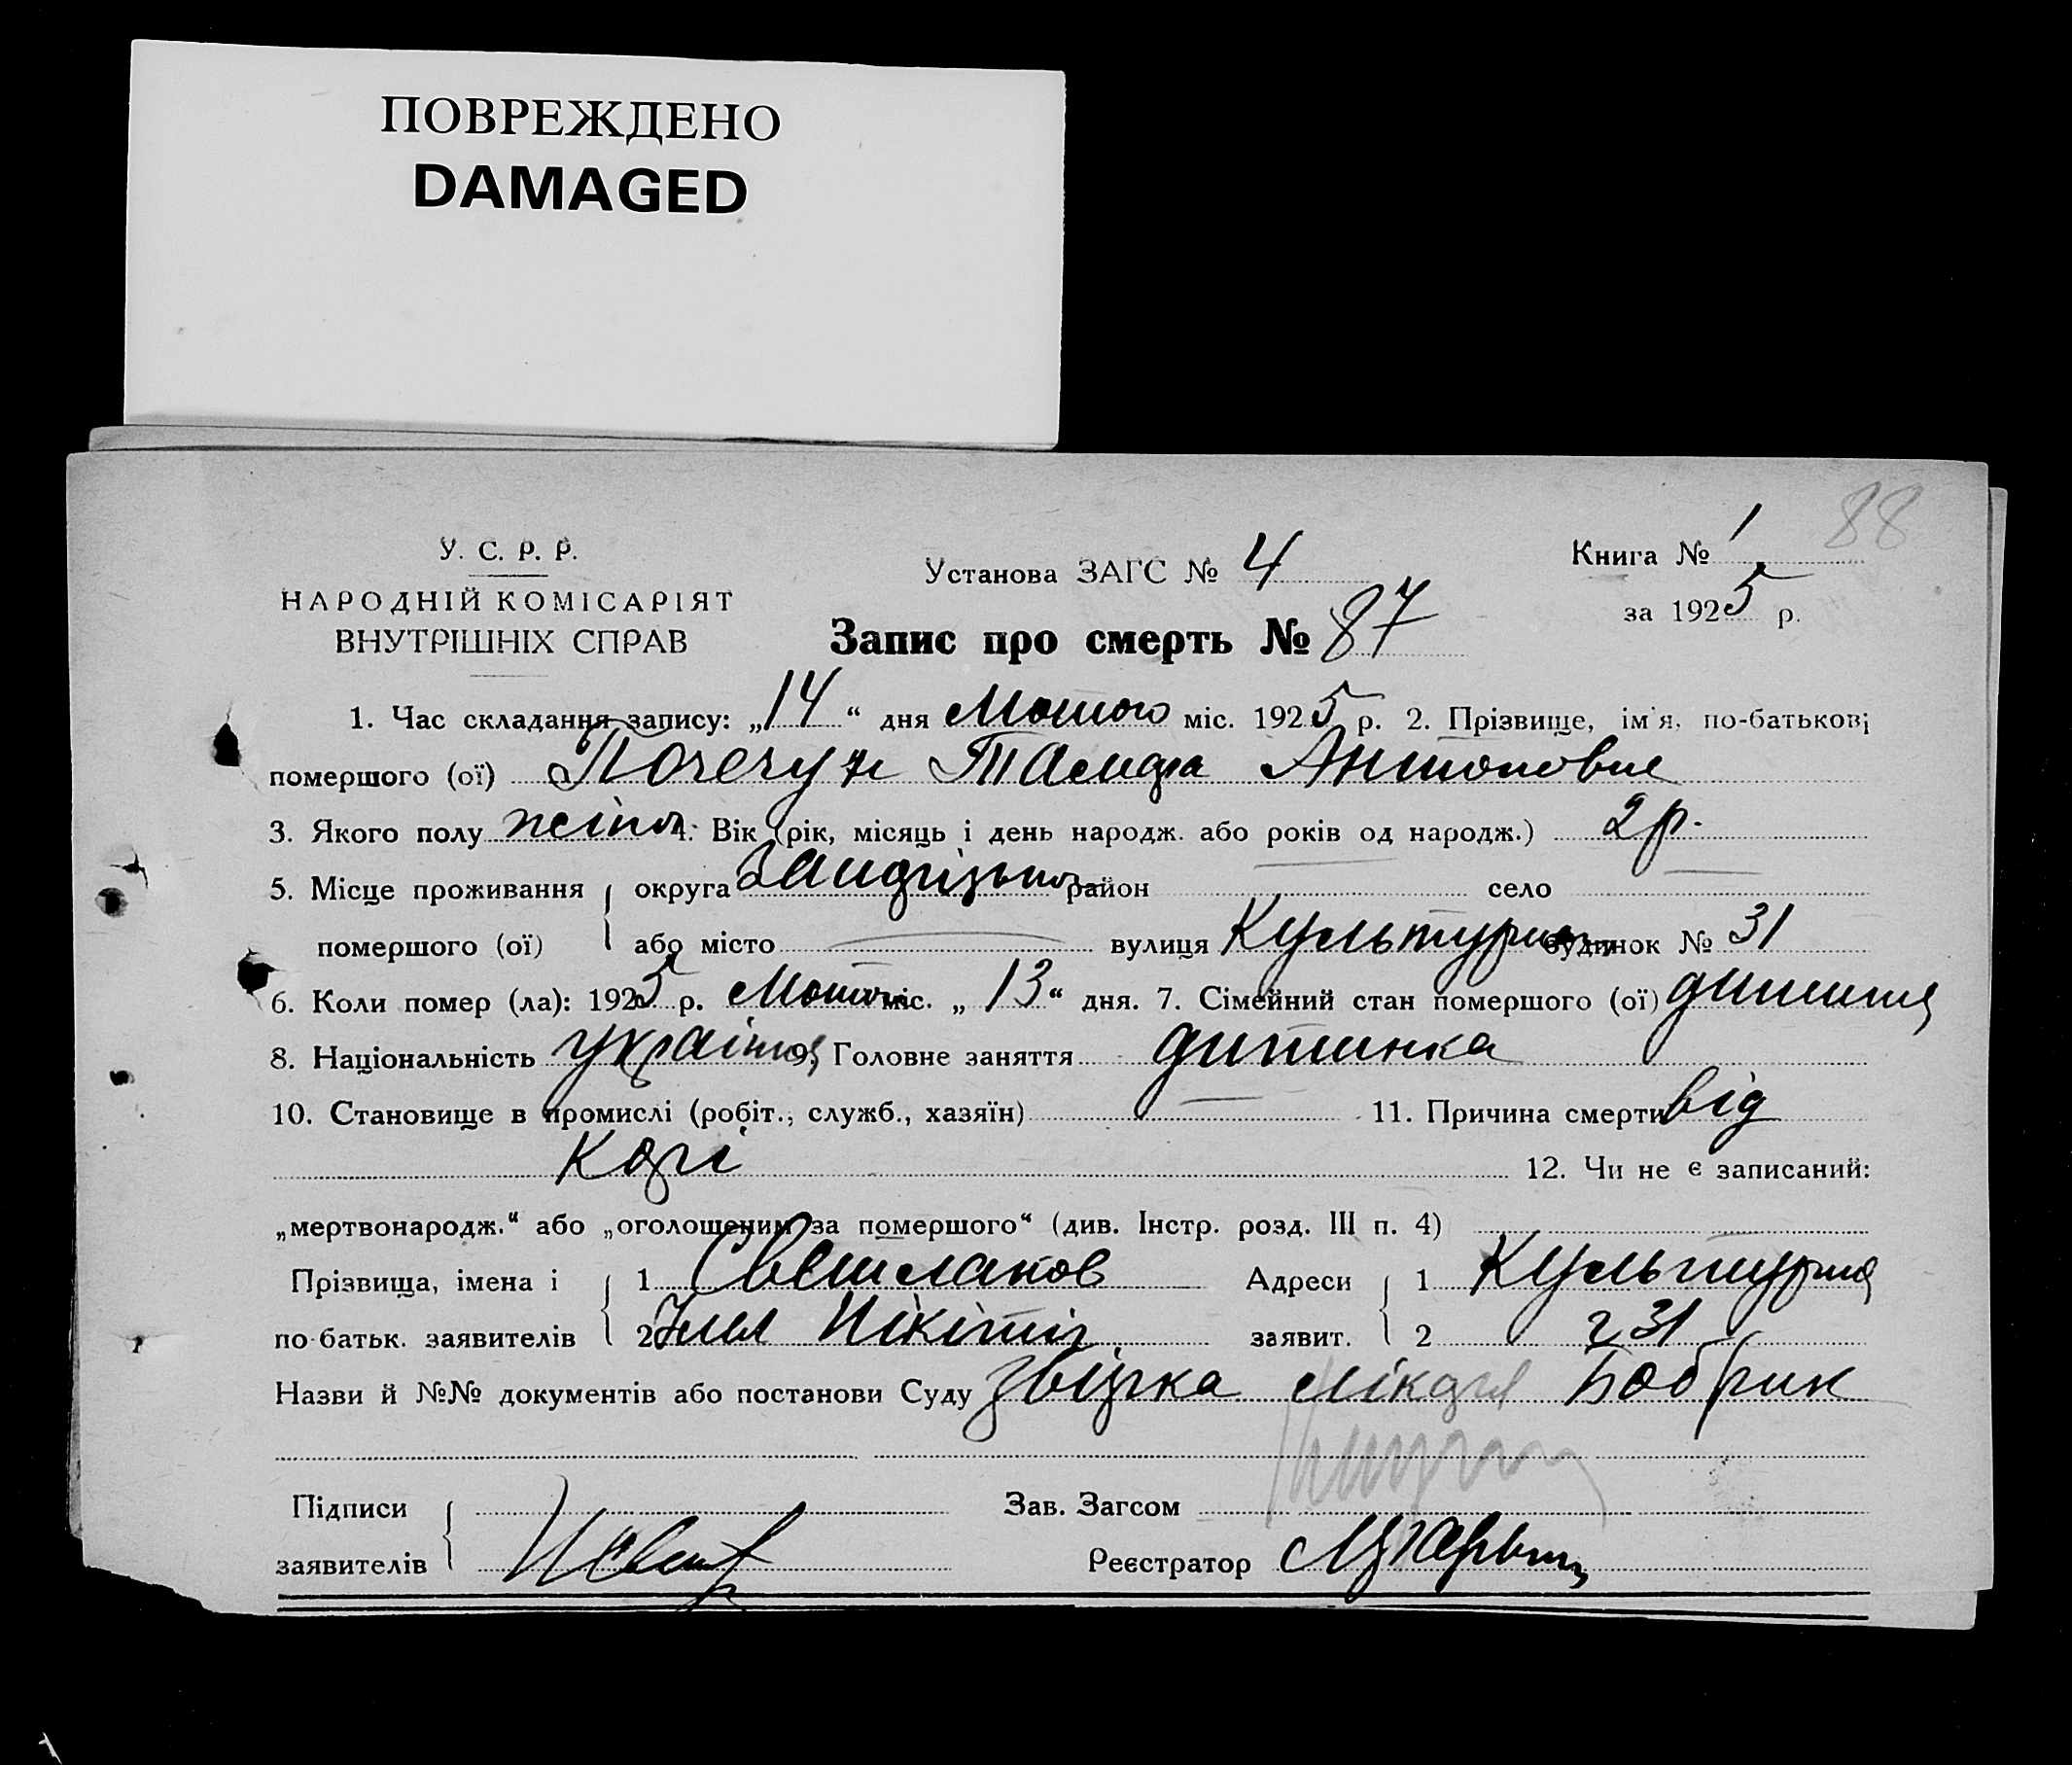 ПОВРЕЖДЕНО
DAMAGED
88
У. С. Р. Р.
НАРОДНІЙ КОМІСАРІЯТ
ВНУТРІШНІХ СПРАВ
Установа ЗАГС № 4
Запис про смерть № 87
Книга № 1
за 1925 р.
1. Час складання запису: „14“ дня Лютого міс. 1925 р. 2. Прізвище, ім'я, по-батькові
помершого (ої) Антоновна
3. Якого полу жіноч. 4. Вік (рік, місяць і день народж. або років од народж.) 2 р.
5. Місце проживання округа район село
помершого (ої) або місто вулиця Культурна будинок № 31
6. Коли помер (ла): 1925 р. Лютого міс. „13“ дня. 7. Сімейний стан помершого (ої) дитина
8. Національність українка 9. Головне заняття дитинка
10. Становище в промислі (робіт., служб., хазяїн) 11. Причина смерти від
Корі 12. Чи не є записаний:
„мертвонародж.“ або „оголошеним за помершого“ (див. Інстр. розд. III п. 4)
Прізвища, імена і 1 Светлаков Адреси 1 Культурна
по-батьк. заявителів 2 Нікітіч заявит. 2 31
Назви й №№ документів або постанови Суду звістка лікаря Бобрик
Підписи Зав. Загсом
заявителів Реєстратор